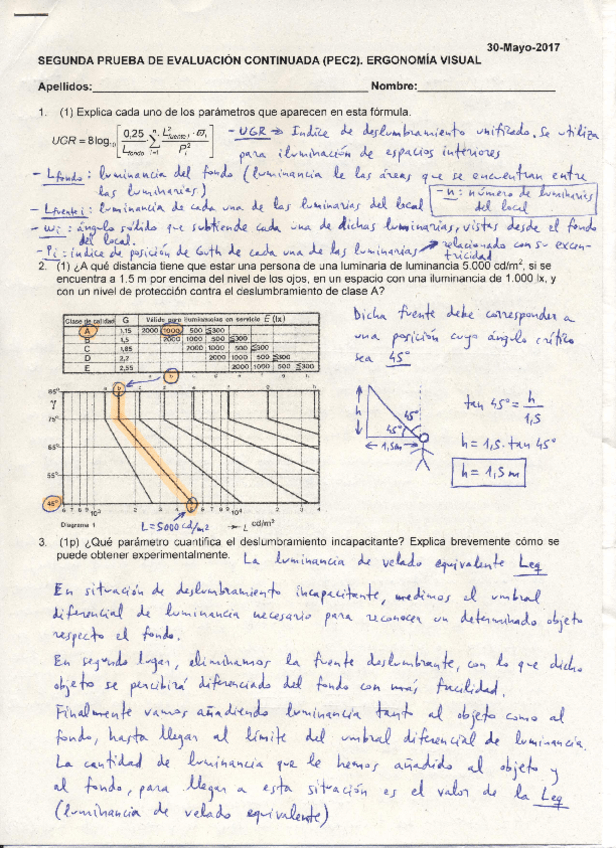 30-Mayo-2017
SEGUNDA PRUEBA DE EVALUACIÓN CONTINUADA (PEC2). ERGONOMÍA VISUAL
Apellidos: Nombre:
1. (1) Explica cada uno de los parámetros que aparecen en esta fórmula.
UGR = 8log10 [0,25/Lfondo Σ L²fuente i · ϖi / Pi²]
- UGR ⇒ Indice de deslumbramiento unificado. Se utiliza
para iluminación de espacios interiores
- Lfondo: luminancia del fondo (luminancia de las áreas que se encuentran entre
las luminarias)
- n: número de luminarias
del local
- Lfuente i: luminancia de cada una de las luminarias del local
- wi: ángulo sólido que subtiende cada una de dichas luminarias, vistas desde el fondo
del local.
- Pi: indice de posición de Guth de cada una de las luminarias → relacionado con su excen-
tricidad
2. (1) ¿A qué distancia tiene que estar una persona de una luminaria de luminancia 5.000 cd/m², si se
encuentra a 1.5 m por encima del nivel de los ojos, en un espacio con una iluminancia de 1.000 lx, y
con un nivel de protección contra el deslumbramiento de clase A?
Clase de calidad G Válido para iluminancias en servicio E (lx)
A 1,15 2000 1000 500 ≤300
B 1,5 2000 1000 500 ≤300
C 1,85 2000 1000 500 ≤300
D 2,2 2000 1000 500 ≤300
E 2,55 2000 1000 500 ≤300
85°
γ
75°
65°
55°
45°
Diagrama 1
L=5000 cd/m²
→ L cd/m²
Dicha fuente debe corresponder a
una posición cuyo ángulo crítico
sea 45°
h
45°
45°
1,5m
tan 45° = h/1,5
h = 1,5 · tan 45°
h = 1,5 m
3. (1p) ¿Qué parámetro cuantifica el deslumbramiento incapacitante? Explica brevemente cómo se
puede obtener experimentalmente.
La luminancia de velado equivalente Leq
En situación de deslumbramiento incapacitante, medimos el umbral
diferencial de luminancia necesario para reconocer un determinado objeto
respecto el fondo.
En segundo lugar, eliminamos la fuente deslumbrante, con lo que dicho
objeto se percibirá diferenciado del fondo con más facilidad.
Finalmente vamos añadiendo luminancia tanto al objeto como al
fondo, hasta llegar al límite del umbral diferencial de luminancia.
La cantidad de luminancia que le hemos añadido al objeto y
al fondo, para llegar a esta situación es el valor de la Leq
(luminancia de velado equivalente)